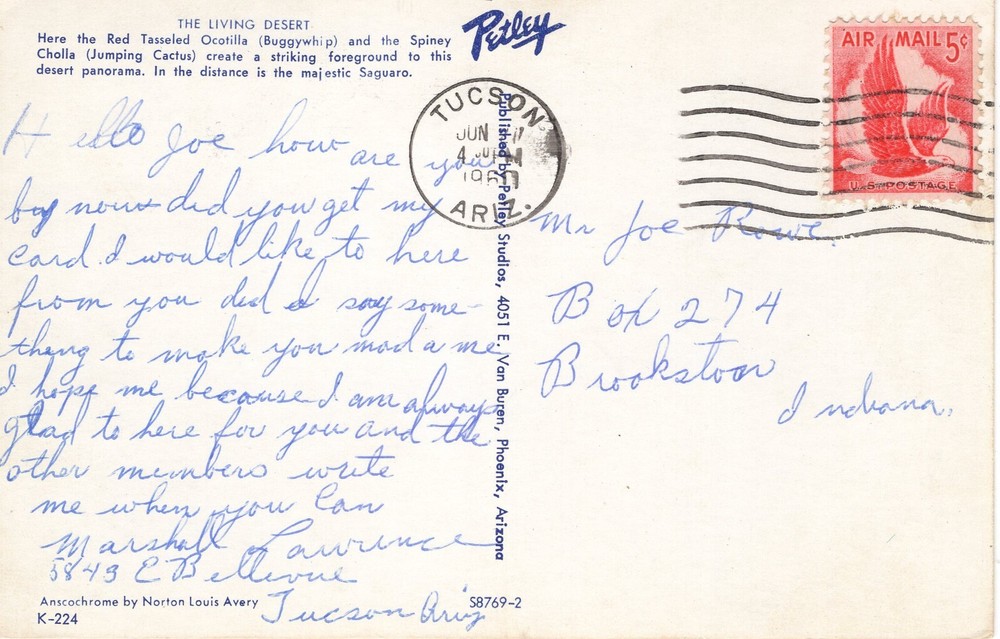 THE LIVING DESERT
Here the Red Tasseled Ocotilla (Buggywhip) and the Spiney
Cholla (Jumping Cactus) create a striking foreground to this
desert panorama. In the distance is the majestic Saguaro.
Petley
TUCSON
JUN
4 PM
1960
ARIZ.
AIR MAIL 5¢
U.S. POSTAGE
Hello Joe how are you
boy now did you get my
card. I would like to here
from you did I say some-
thing to make you mad a me
I hope me because I am always
glad to here for you and the
other members write
me when you Can
Marshall Lawrence
5849 E Bellevue
Tucson Ariz
Mr Joe Rowe.
Box 274
Brookston
Indiana.
Published by Petley Studios, 4051 E. Van Buren, Phoenix, Arizona
Anscochrome by Norton Louis Avery
K-224
S8769-2